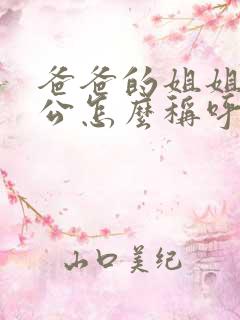 爸爸的姐姐
公怎麼稱呼
山口美纪